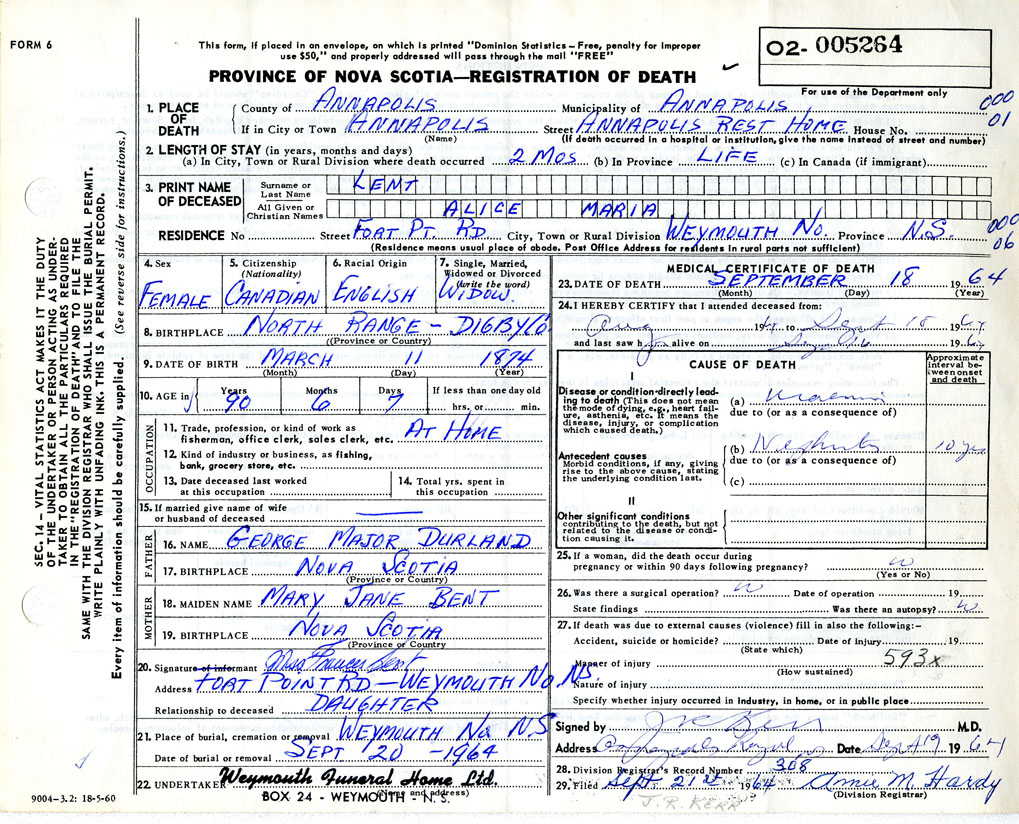 FORM 6
This form, if placed in an envelope, on which is printed "Dominion Statistics – Free, penalty for improper
use $50," and properly addressed will pass through the mail "FREE"
PROVINCE OF NOVA SCOTIA—REGISTRATION OF DEATH
O2- 005264
For use of the Department only
000
01
1. PLACE OF DEATH
County of ANNAPOLIS Municipality of ANNAPOLIS
If in City or Town ANNAPOLIS Street ANNAPOLIS REST HOME House No.
(Name) (If death occurred in a hospital or institution, give the name instead of street and number)
2. LENGTH OF STAY (in years, months and days)
(a) In City, Town or Rural Division where death occurred 2 MOS (b) In Province LIFE (c) In Canada (if immigrant)
3. PRINT NAME OF DECEASED
Surname or Last Name LENT
All Given or Christian Names ALICE MARIA
RESIDENCE No Street FORT PT. RD City, Town or Rural Division WEYMOUTH NO. Province N.S.
000
06
(Residence means usual place of abode. Post Office Address for residents in rural parts not sufficient)
4. Sex FEMALE
5. Citizenship (Nationality) CANADIAN
6. Racial Origin ENGLISH
7. Single, Married, Widowed or Divorced (write the word) WIDOW.
8. BIRTHPLACE NORTH RANGE – DIGBY CO.
((Province or Country)
9. DATE OF BIRTH MARCH 11 1874
(Month) (Day) (Year)
10. AGE in Years 90 Months 6 Days 7 If less than one day old hrs. or min.
OCCUPATION
11. Trade, profession, or kind of work as fisherman, office clerk, sales clerk, etc. AT HOME
12. Kind of industry or business, as fishing, bank, grocery store, etc.
13. Date deceased last worked at this occupation
14. Total yrs. spent in this occupation
15. If married give name of wife or husband of deceased
FATHER
16. NAME GEORGE MAJOR DURLAND
17. BIRTHPLACE NOVA SCOTIA
(Province or Country)
MOTHER
18. MAIDEN NAME MARY JANE BENT
19. BIRTHPLACE NOVA SCOTIA
(Province or Country
20. Signature of informant Miss Frances Lent
Address FORT POINT RD – WEYMOUTH NO. NS.
Relationship to deceased DAUGHTER
21. Place of burial, cremation or removal WEYMOUTH NO. N.S
Date of burial or removal SEPT 20 – 1964
22. UNDERTAKER Weymouth Funeral Home Ltd.
(Name and address)
BOX 24 - WEYMOUTH - N. S.
9004–3.2: 18-5-60
MEDICAL CERTIFICATE OF DEATH
23. DATE OF DEATH SEPTEMBER 18 1964
(Month) (Day) (Year)
24. I HEREBY CERTIFY that I attended deceased from:
Aug 1964 to Sept 18 1964
and last saw h alive on Sept 16 1964
CAUSE OF DEATH
Approximate interval between onset and death
I
Disease or condition directly leading to death (This does not mean the mode of dying, e.g., heart failure, asthenia, etc. It means the disease, injury, or complication which caused death.)
(a) Uraemia
due to (or as a consequence of)
Antecedent causes
Morbid conditions, if any, giving rise to the above cause, stating the underlying condition last.
(b) Nephritis 10 yrs
due to (or as a consequence of)
(c)
II
Other significant conditions
contributing to the death, but not related to the disease or condition causing it.
25. If a woman, did the death occur during pregnancy or within 90 days following pregnancy?
(Yes or No)
26. Was there a surgical operation? Date of operation 19
State findings Was there an autopsy?
27. If death was due to external causes (violence) fill in also the following:–
Accident, suicide or homicide? Date of Injury 19
(State which)
593x
Manner of injury
(How sustained)
Nature of injury
Specify whether injury occurred in Industry, in home, or in public place
Signed by J R Kerr M.D.
Address Annapolis Royal Date Sept 19 1964
28. Division Registrar's Record Number 308
29. Filed Sept. 21st 1964 Annie M. Hardy
(Division Registrar)
J.R. KERR
SEC. 14 – VITAL STATISTICS ACT MAKES IT THE DUTY
OF THE UNDERTAKER OR PERSON ACTING AS UNDER-
TAKER TO OBTAIN ALL THE PARTICULARS REQUIRED
IN THE "REGISTRATION OF DEATH" AND TO FILE THE
SAME WITH THE DIVISION REGISTRAR WHO SHALL ISSUE THE BURIAL PERMIT.
WRITE PLAINLY WITH UNFADING INK. THIS IS A PERMANENT RECORD.
Every item of information should be carefully supplied. (See reverse side for instructions.)